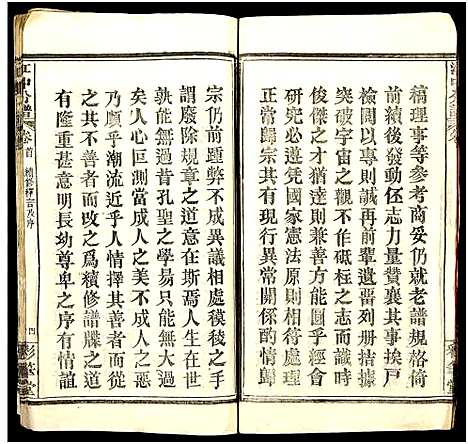 稿理事等參考商妥仍就老譜規格倚
前續後發動伾志力量贊襄其事挨戶
檢閱以專則誡再前輩遺畱列册拮據
突破宇宙之觀不作砥柱之志而具有
俊傑之才猶達則兼善方能圓乎經會
研究必遵凭國家憲法原則可也不失
正常歸宗其有現行異常關係酌情歸
宗仍前踵弊不成異議相得穢後之手
謂廢除規章之道意在斯焉人生在世
孰能無過昔孔聖之學易只能無大過
矣人心叵測當成人之美不成人之惡
乃順乎潮流近乎人情擇其善而從
之其不善者而改之爲續修譜牒之道
有隆重甚意明長幼尊卑之序有情誼
江中公譜
卷首
續修序言及序
四
彩荾堂